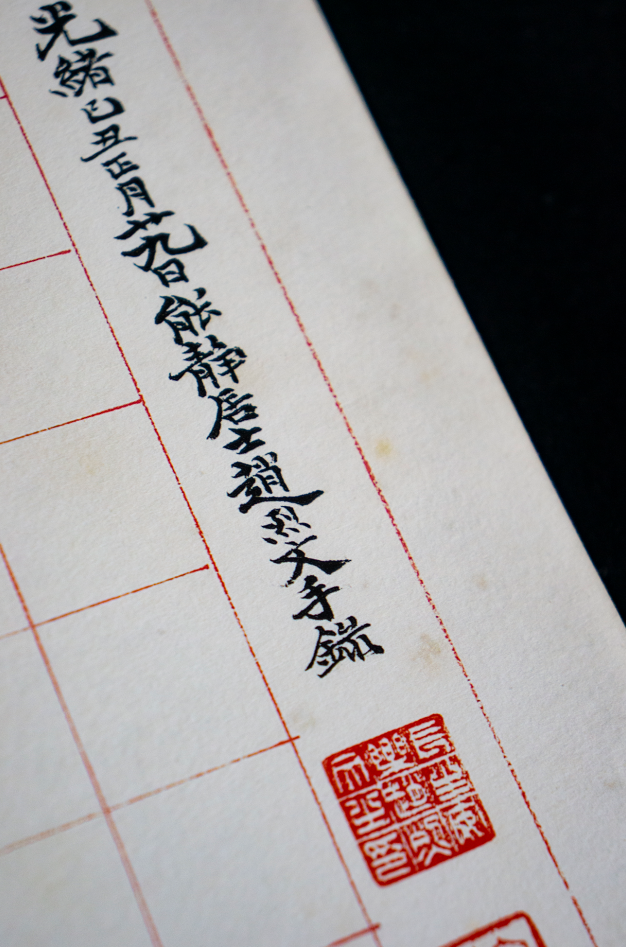 光緒己丑正月廿九日能靜居士趙烈文手錄